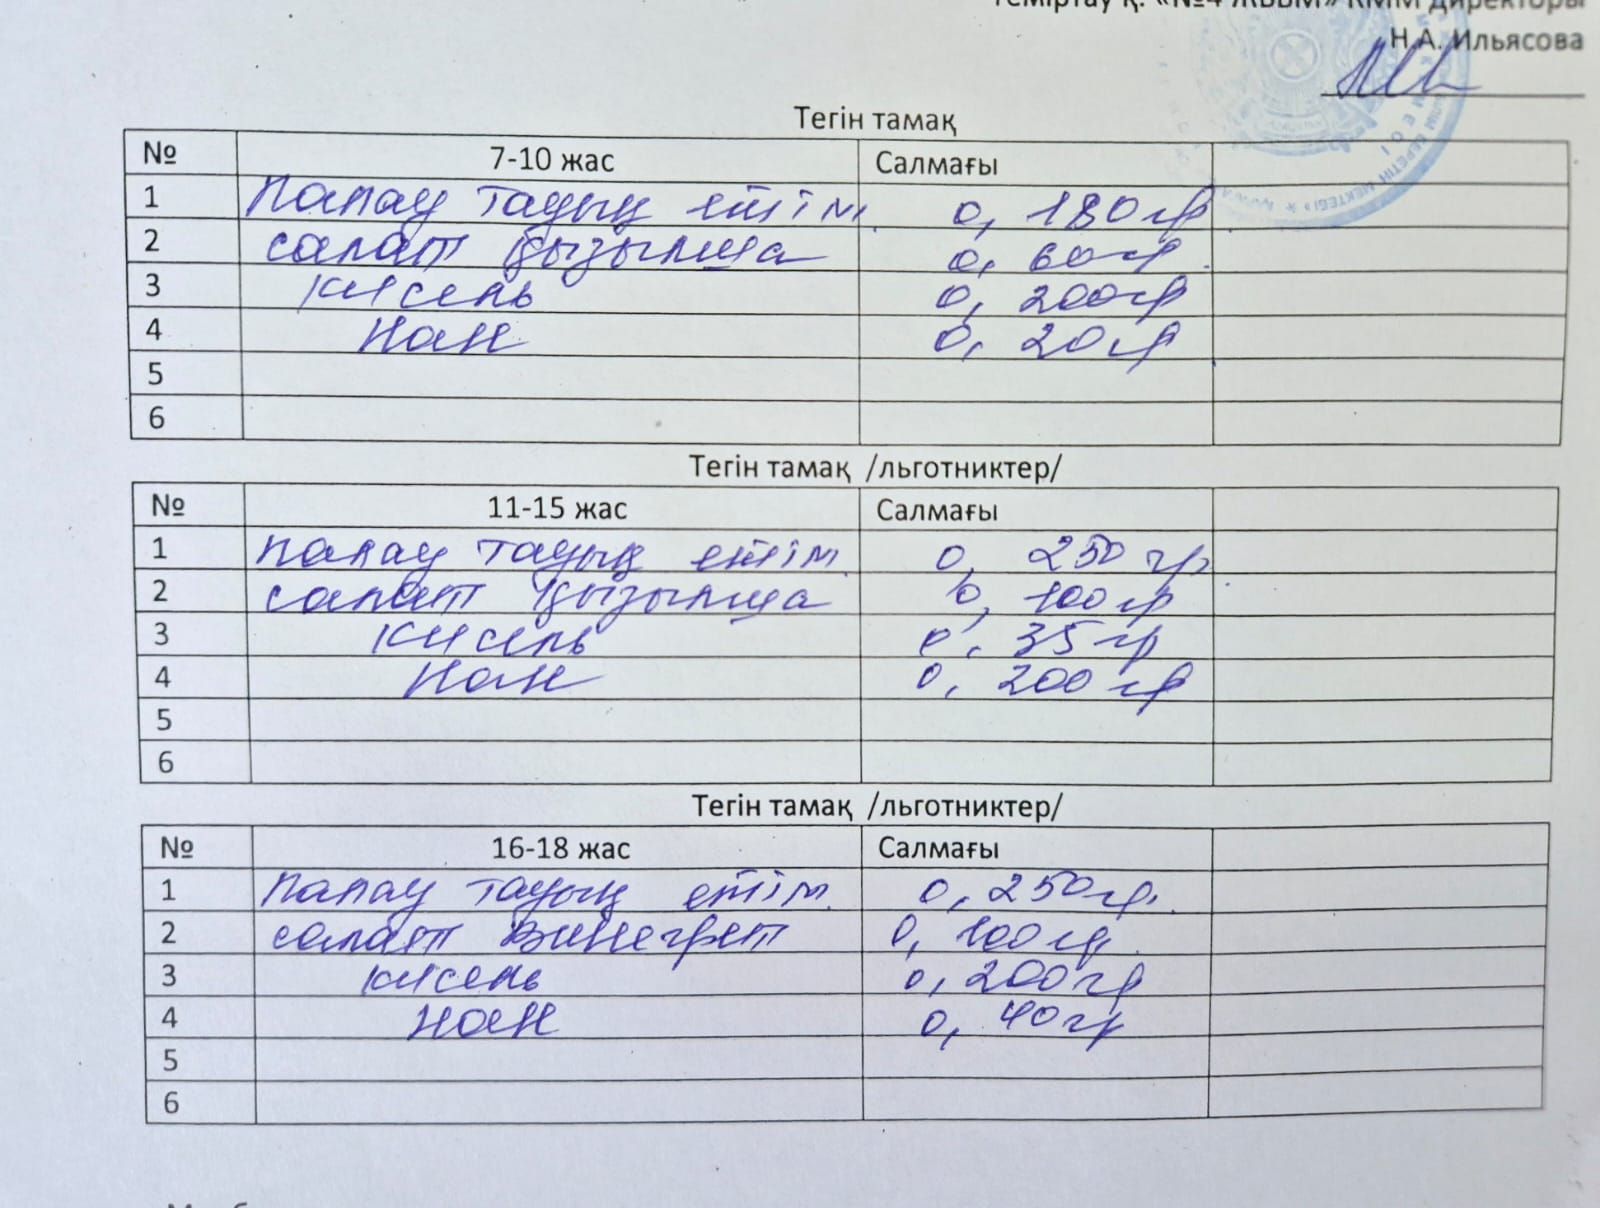 Теміртау қ. «№4 ЖББМ» КММ директоры
Н.А. Ильясова
Тегін тамақ
№ 7-10 жас Салмағы
1 Палау тауық етім. 0, 180гр
2 салат қызылша 0, 60гр.
3 кисель 0, 200гр
4 Нан 0, 20гр
5
6
Тегін тамақ /льготниктер/
№ 11-15 жас Салмағы
1 палау тауық етім. 0, 250 гр.
2 салат қызылша 0, 100гр
3 кисель 0, 35гр
4 Нан 0, 200гр
5
6
Тегін тамақ /льготниктер/
№ 16-18 жас Салмағы
1 палау тауық етім. 0, 250гр.
2 салат винегрет 0, 100гр.
3 кисель 0, 200гр
4 нан 0, 40гр
5
6